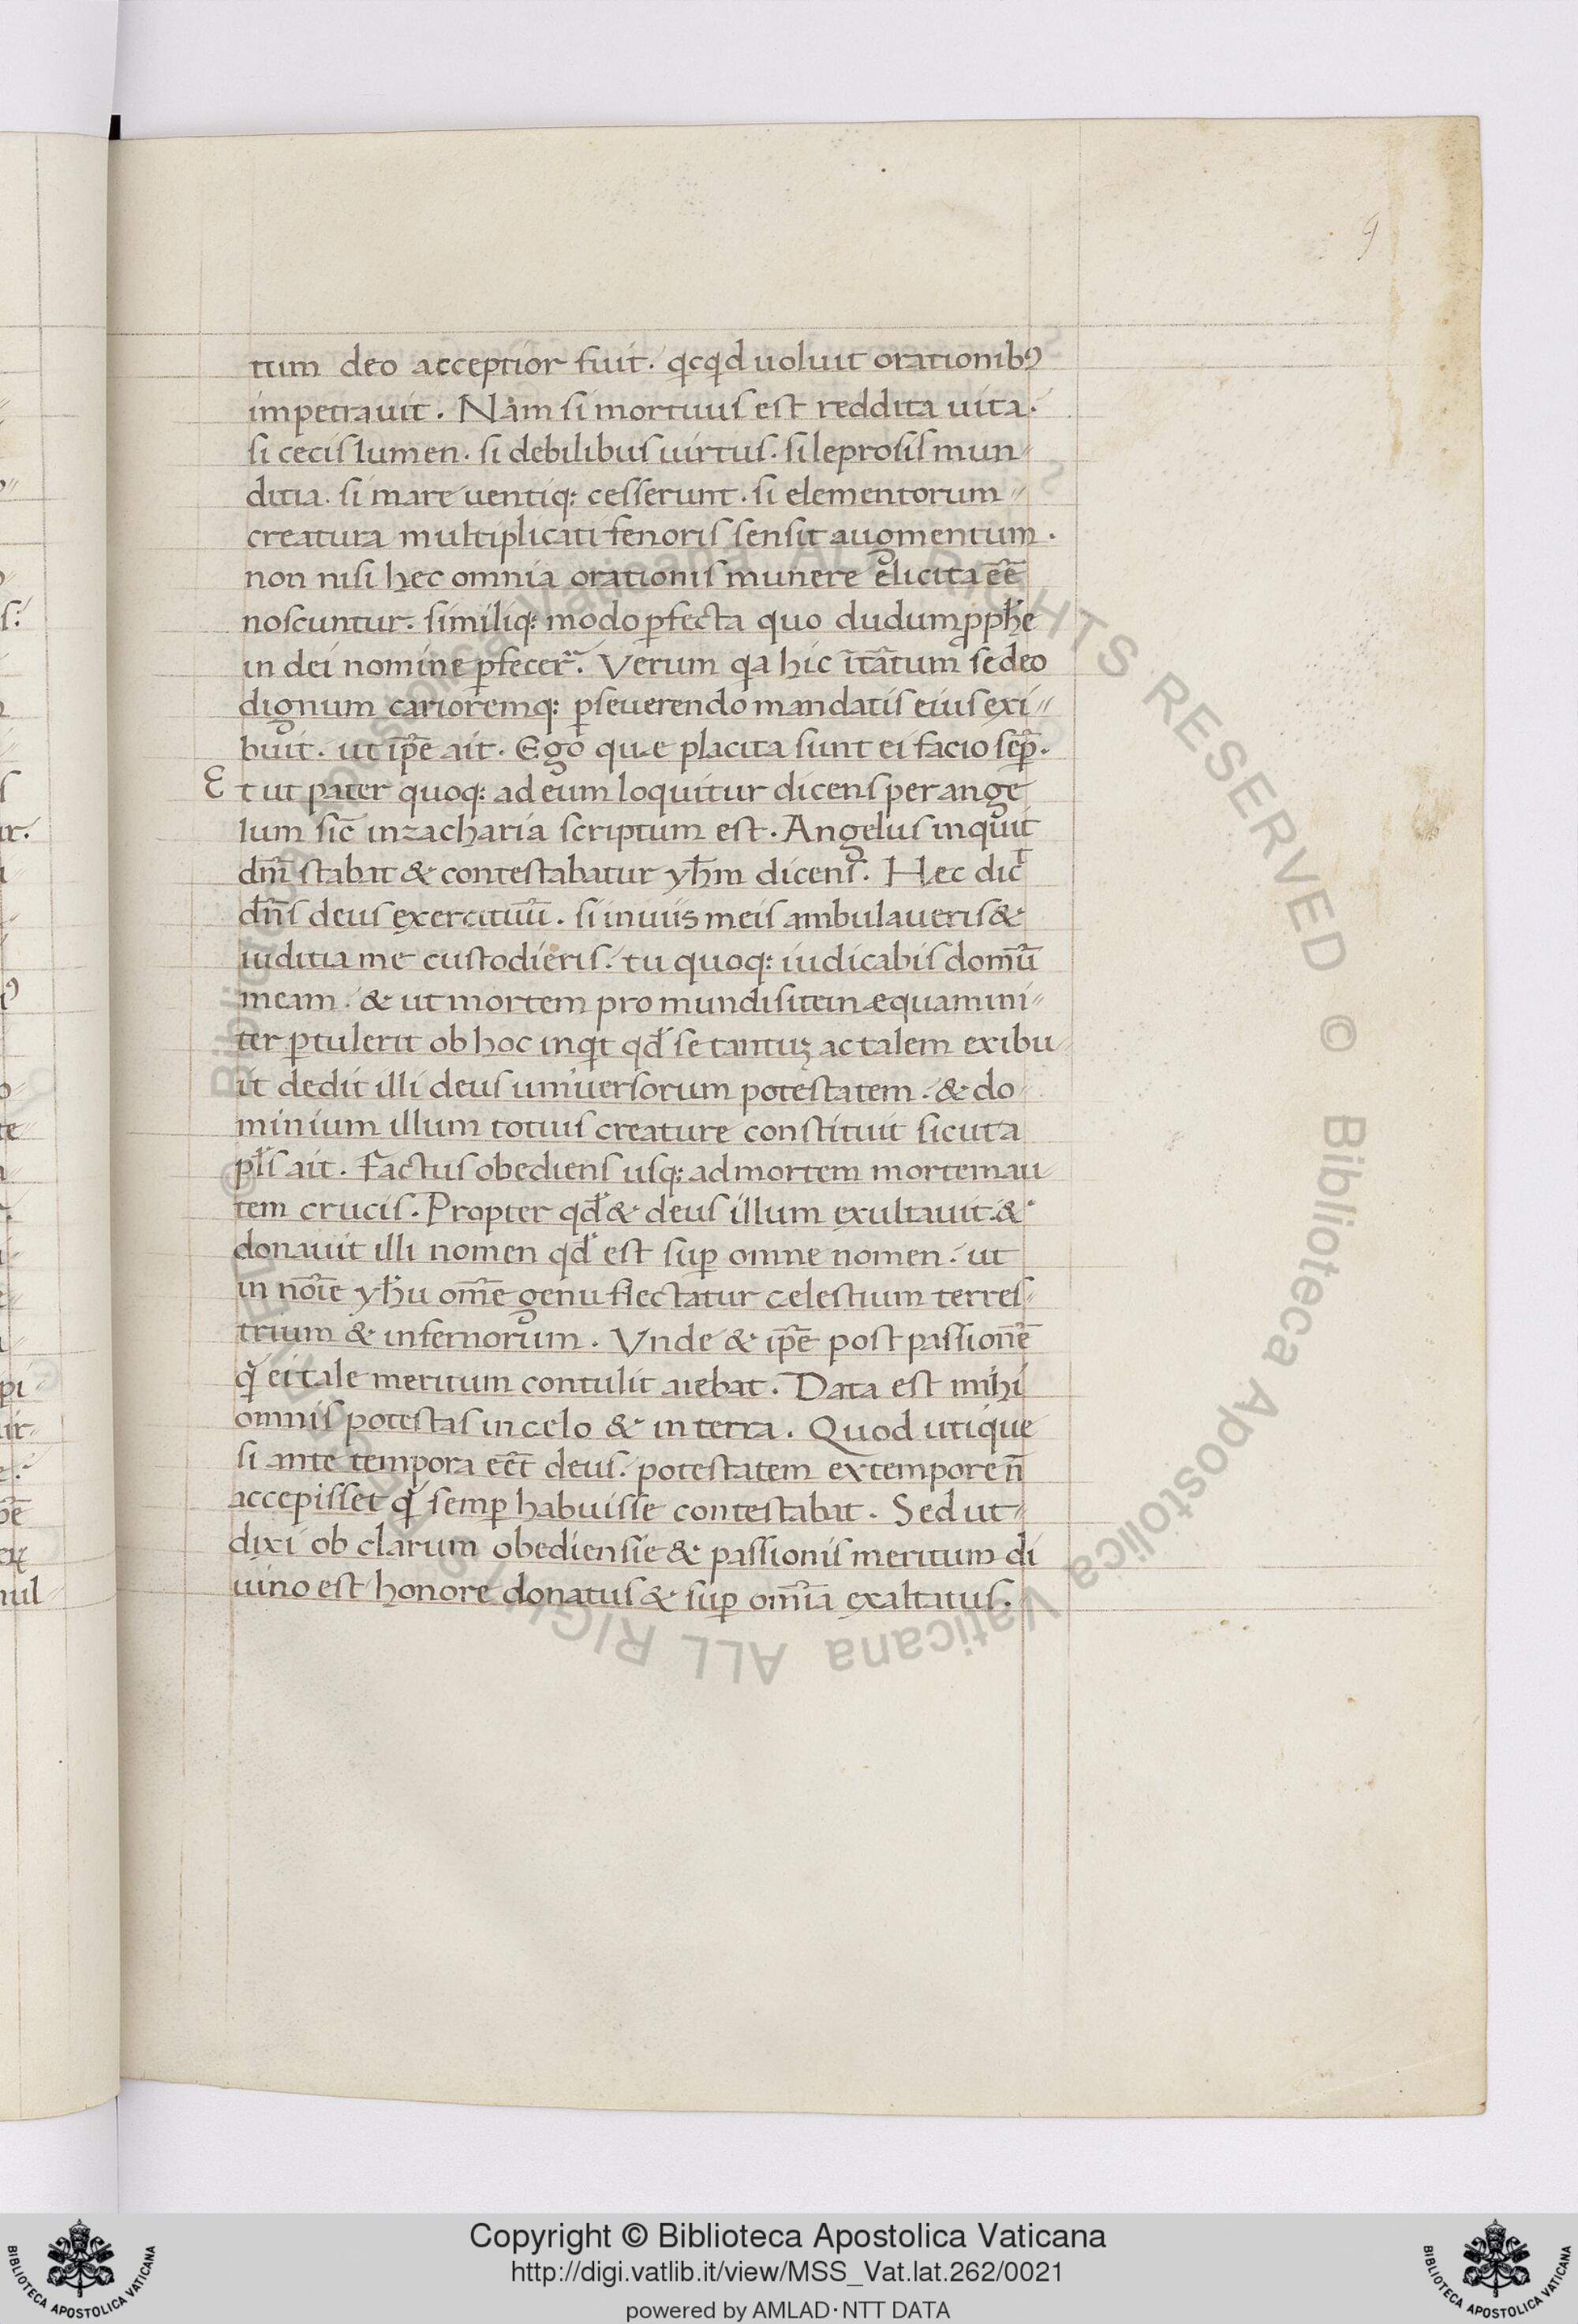 9
tum deo acceptior fuit. qcqd uoluit orationibꝰ
impetrauit. Nam si mortuus est reddita uita.
si cecis lumen. si debilibus uirtus. si leprosis mun-
ditia. si mare uentiq: cesserunt. si elementorum
creatura multiplicati fenoris sensit augmentum.
non nisi hec omnia orationis munere elicita eē
noscuntur. similiq: modo ꝑfecta quo dudum ꝓpħe
in dei nomine ꝑfecer̃. Verum qa hic ĩtãtum se deo
dignum carioremq: ꝑseuerendo mandatis eius exi-
buit. ut ip̃e ait. Ego quæ placita sunt ei facio sep̃.
Et ut pater quoq: ad eum loquitur dicens per ange
lum sic̃ in zacharia scriptum est. Angelus inquit
dñi stabat & contestabatur yħm dicens. Hec dic̃
dñs deus exercituũ. si in uiis meis ambulaueris &
iuditia me custodieris. tu quoq: iudicabis domũ
meam. & ut mortem pro mundi sitein æquamini-
ter ꝑtulerit ob hoc inqit qđ se tantuꝫ ac talem exibu
it dedit illi deus uniuersorum potestatem. & do
minium illum totius creature constituit sicut a
pl̃s ait. Factus obediens usq: ad mortem mortem au
tem crucis. Propter qđ & deus illum exultauit. &
donauit illi nomen qđ est suꝑ omne nomen. ut
in noĩe yħu om̃e genu flectatur celestium terres-
trium & infernorum. Vnde & ip̃e post passionẽ
q̃ ei tale meritum contulit aiebat. Data est mihi
omnis potestas in celo & in terra. Quod utique
si ante tempora eēt deus. potestatem ex tempore ñ
accepisset q̃ semꝑ habuisse contestabat. Sed ut
dixi ob clarum obediensie & passionis meritum di
uino est honore donatus & suꝑ om̃ia exaltatus.
© Biblioteca Apostolica Vaticana ALL RIGHTS RESERVED © Biblioteca Apostolica Vaticana ALL RIGHTS RESERVED
Copyright © Biblioteca Apostolica Vaticana
http://digi.vatlib.it/view/MSS_Vat.lat.262/0021
powered by AMLAD·NTT DATA
BIBLIOTECA APOSTOLICA VATICANA
BIBLIOTECA APOSTOLICA VATICANA